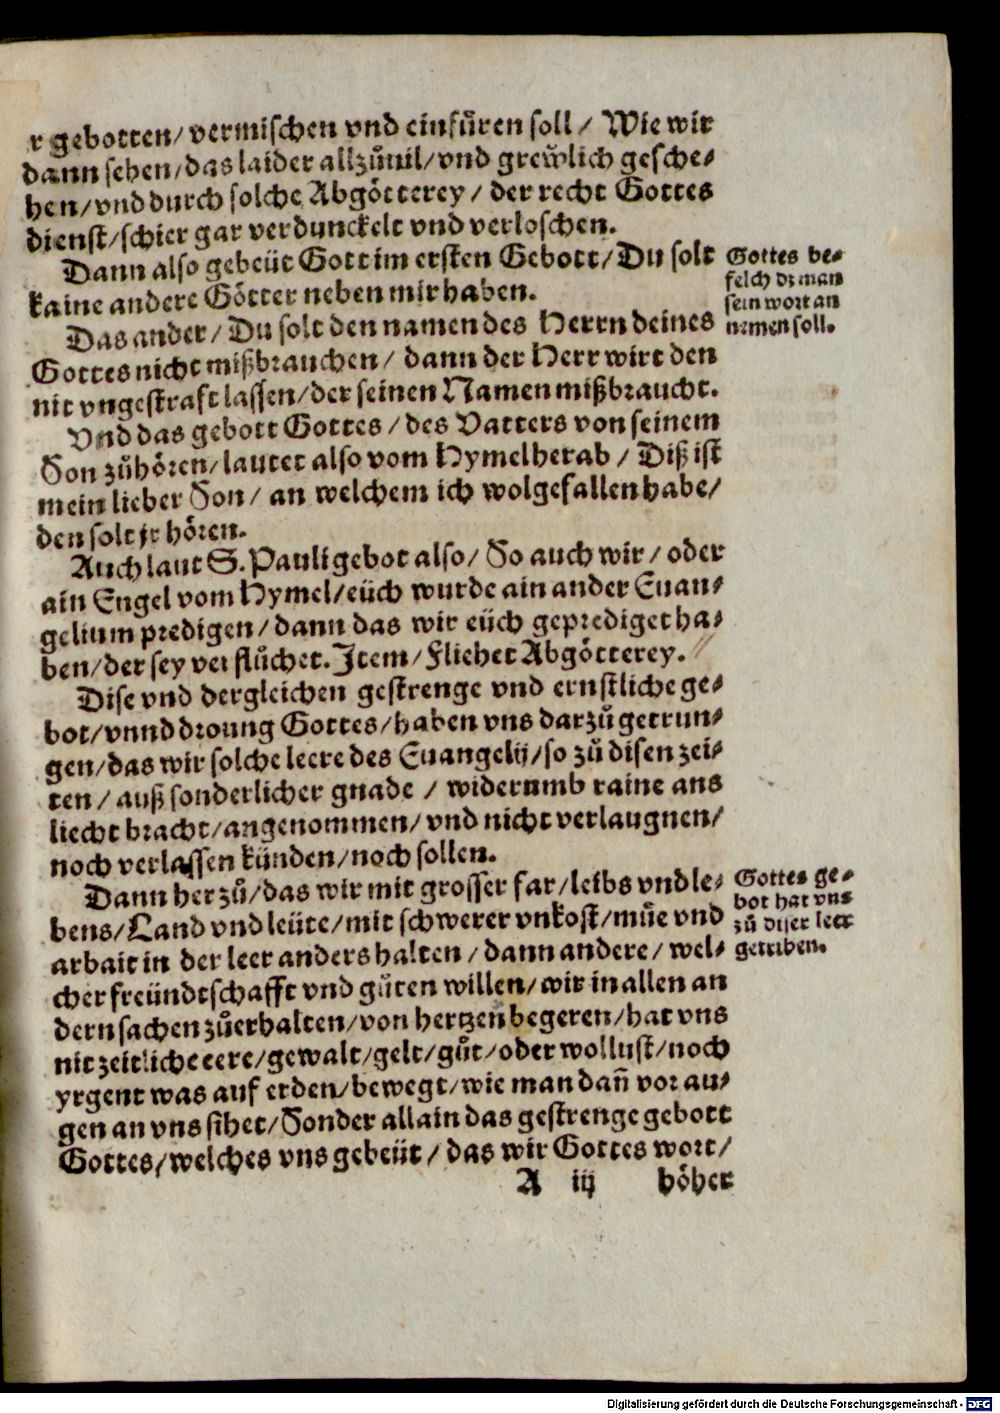 r gebotten/ vermischen vnd einfuͤren soll/ Wie wir
dann sehen/ das laider allzuͦuil/ vnd grewͤlich gesche⸗
hen/ vnd durch solche Abgoͤtterey/ der recht Gottes
dienst/ schier gar verdunckelt vnd verloschen.
Dann also gebeüt Gott im ersten Gebott/ Du solt
kaine andere Goͤtter neben mir haben.
Gottes be⸗
felch dz man
sein wort an
nemen soll.
Das ander/ Du solt den namen des Herrn deines
Gottes nicht mißbrauchen/ dann der Herr wirt den
nit vngestraft lassen/ der seinen Namen mißbraucht.
Vnd das gebott Gottes/ des Vatters von seinem
Son zuͦhoͤren/ lautet also vom Hymel herab/ Diß ist
mein lieber Son/ an welchem ich wolgefallen habe/
den solt jr hoͤren.
Auch laut S. Pauli gebot also/ So auch wir/ oder
ain Engel vom Hymel/ eüch wurde ain ander Euan⸗
gelium predigen/ dann das wir eüch geprediget ha⸗
ben/ der sey verfluͦchet. Item/ Fliehet Abgoͤtterey.
Dise vnd dergleichen gestrenge vnd ernstliche ge⸗
bot/ vnnd droung Gottes/ haben vns darzuͦ getrun⸗
gen/ das wir solche leere des Euangelij/ so zuͦ disen zei⸗
ten/ auß sonderlicher gnade/ widerumb raine ans
liecht bracht/ angenommen/ vnd nicht verlaugnen/
noch verlassen künden/ noch sollen.
Dann her zuͦ/ das wir mit grosser far/ leibs vnd le⸗
bens/ Land vnd leüte/ mit schwerer vnkost/ muͤe vnd
arbait in der leer anders halten/ dann andere/ wel⸗
cher freündtschafft vnd guͦten willen/ wir in allen an
dern sachen zuͦerhalten/ von hertzen begeren/ hat vns
nit zeitliche eere/ gewalt/ gelt/ guͦt/ oder wollust/ noch
yrgent was auf erden/ bewegt/ wie man dañ vor au⸗
gen an vns sihet/ Sonder allain das gestrenge gebott
Gottes/ welches vns gebeüt/ das wir Gottes wort/
Gottes ge⸗
bot hat vns
zuͦ diser leer
getriben.
A iij höher
Digitalisierung gefördert durch die Deutsche Forschungsgemeinschaft - DFG